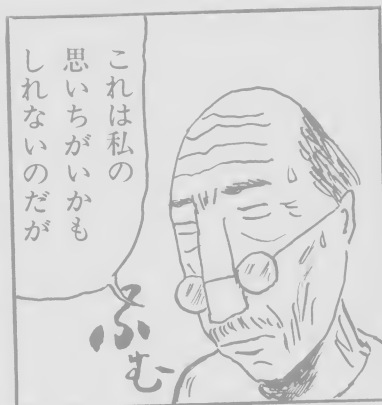 これは私の
思いちがいかも
しれないのだが
ふむ